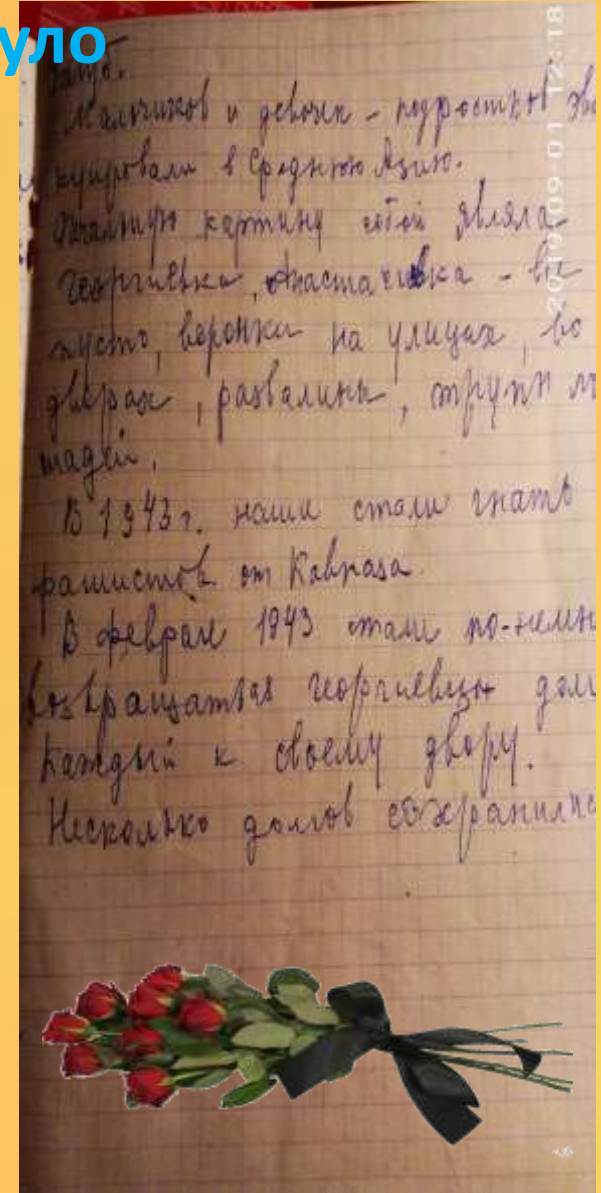 уло
Мальчиков и девочек - подростков эва
куировали в Среднюю Азию.
картину собой являла
Георгиевка, - все
пусто, воронки на улицах, во
дворах, развалины, трупы ло
шадей.
В 1943 г. наши стали гнать
фашистов от Кавказа.
В феврале 1943 стали по-немн
возвращаться георгиевцы дом
каждый к своему двору.
Несколько домов сохранилис
2019 09 01 12:18